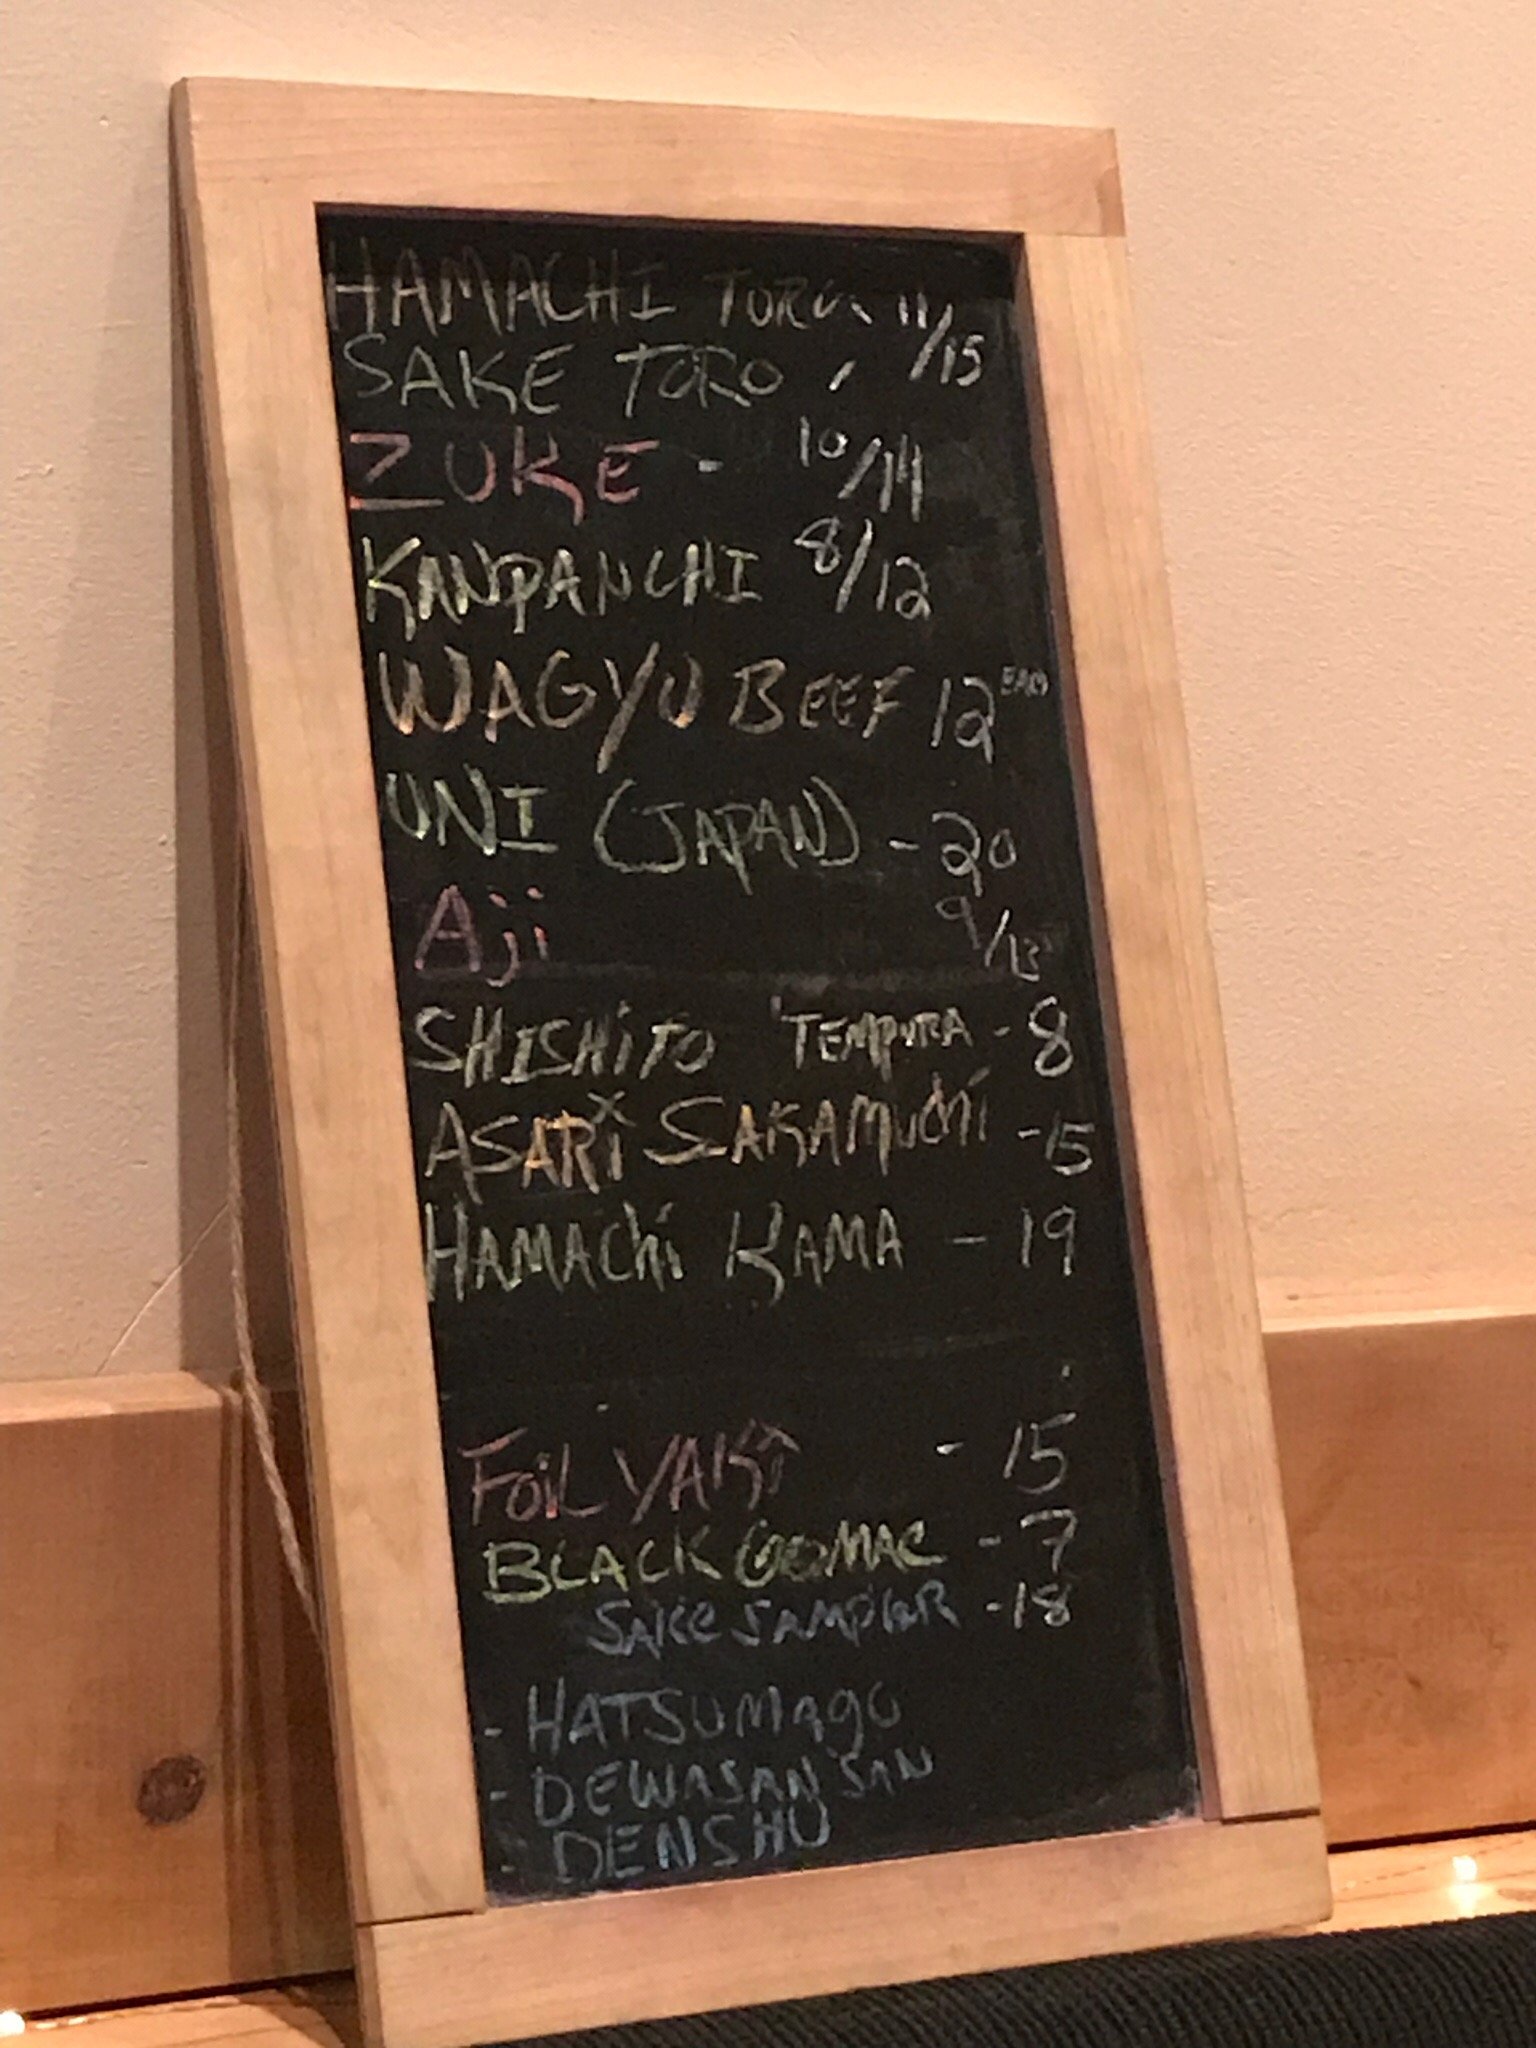 HAMACHI TORO 11/15
SAKE TORO
ZUKE - 10/14
KANPANCHI 8/12
WAGYU BEEF 12 EACH
UNI (JAPAN) - 20
Aji 9/13
SHISHITO TEMPURA - 8
ASARI SAKAMUCHI - 15
HAMACHI KAMA - 19
FOIL YAKI - 15
BLACK GOMAE - 7
SAKE SAMPLER - 18
- HATSUMAGO
- DEWASANSAN
- DENSHU